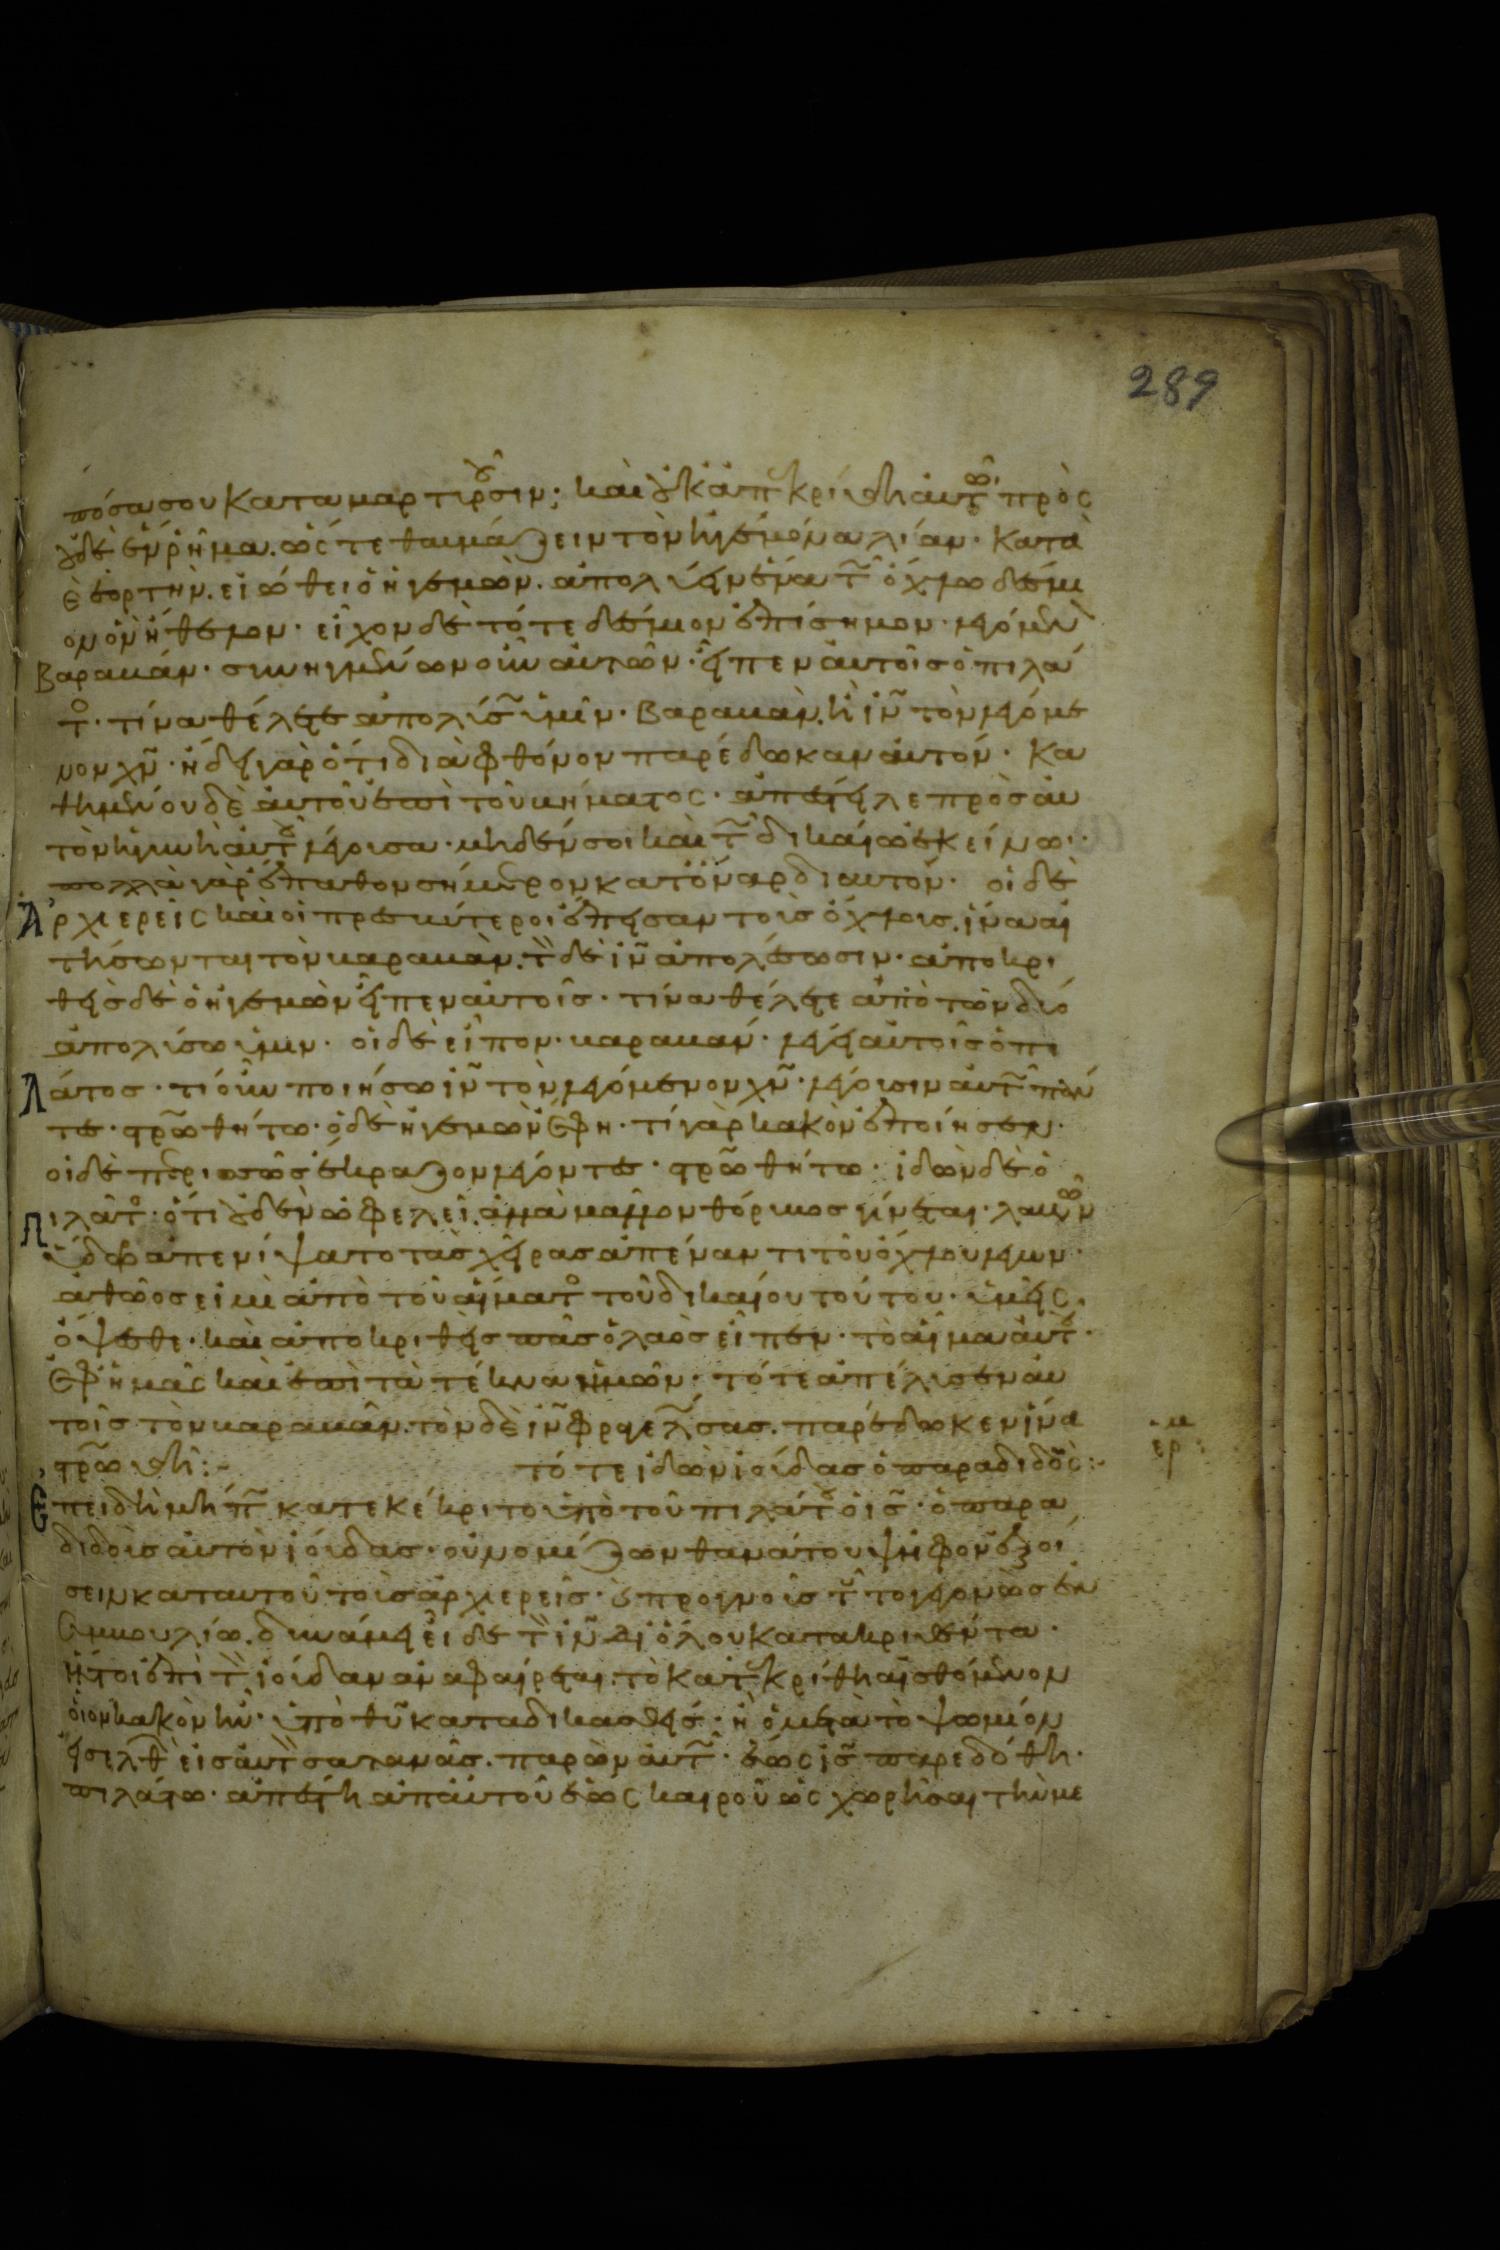 289
πόσα σου καταμαρτυροῦσιν; καὶ οὐκ ἀπεκρίθη αὐτῶ πρὸς
οὐδὲ ἓν ῥῆμα. ὥστε θαυμάζειν τὸν ἡγεμόνα λίαν. κατὰ
ἑορτὴν. εἰώθει ὁ ἡγεμὼν. ἀπολύειν ἕνα τῶ ὄχλω δέσμι
ον ὃν ἤθελον. εἶχον δὲ τότε δέσμιον ἐπίσημον. λεγόμενον
βαραββάν. συνηγμένων οὖν αὐτῶν. εἶπεν αὐτοῖς ὁ πιλά
τος. τίνα θέλετε ἀπολύσω ὑμῖν. βαραββὰν. ἢ ιν τὸν λεγόμε
νον χν. ἤδει γὰρ ὅτι διὰ φθόνον παρέδωκαν αὐτόν. κα
θημένου δὲ αὐτοῦ ἐπὶ τοῦ βήματος. ἀπέστειλε πρὸς αὐ
τὸν ἡ γυνὴ αὐτοῦ λέγουσα. μηδέν σοι καὶ τῶ δικαίω ἐκείνω.
πολλὰ γὰρ ἔπαθον σήμερον κατ' ὄναρ δι αυτόν. οἱ δὲ
ἀρχιερεῖς καὶ οἱ πρεσβύτεροι ἔπεισαν τοὺς ὄχλους. ἵνα αἰ
τήσωνται τὸν βαραββὰν. τὸν δὲ ιν ἀπολέσωσιν. ἀποκρι
θεὶς δὲ ὁ ἡγεμὼν εἶπεν αὐτοῖς. τίνα θέλετε ἀπὸ τῶν δύο
ἀπολύσω ὑμῖν. οἱ δὲ εἶπον. βαραββάν. λέγει αὐτοῖς ὁ πι
λάτος. τί οὖν ποιήσω ιν τὸν λεγόμενον χν. λέγουσιν αὐτῶ πάν
τες. στρωθήτω. ὁ δὲ ἡγεμὼν ἔφη. τί γὰρ κακὸν ἐποίησεν.
οἱ δὲ περισσῶς ἔκραζον λέγοντες. στρωθήτω. ἰδὼν δὲ ὁ
πιλᾶτος. ὅτι οὐδὲν ὠφελεῖ. ἀλλὰ μᾶλλον θόρυβος γίνεται. λαβὼν
ὕδωρ ἀπενίψατο τὰς χεῖρας ἀπέναντι τοῦ ὄχλου λέγων.
ἀθῶος εἰμὶ ἀπὸ τοῦ αἵματος τοῦ δικαίου τούτου. ὑμεῖς
ὄψεσθε. καὶ ἀποκριθεὶς πᾶς ὁ λαὸς εἶπεν. τὸ αἷμα αὐτοῦ.
ἐφ' ἡμᾶς καὶ ἐπὶ τὰ τέκνα ἡμῶν. τότε ἀπέλυσεν αὐ
τοῖς τὸν βαραββᾶν. τὸν δὲ ιν φραγελλώσας. παρέδωκεν ἵνα
στρωθῆ:- τότε ἰδὼν ἰούδας ὁ παραδιδοὺς:-
ερ:
ἐπειδὴ μήπω κατεκέκριτο ὑπὸ τοῦ πιλάτου ὁ ις. ὁ παρα
διδοὺς αὐτὸν ἰούδας. οὐ νομίζων θανάτου ψῆφον ἐξοί
σειν κατ αυτοῦ τοὺς ἀρχιερεῖς. ὡς προγνοὺς τοῦτο γεγονὼς ἐν
συμβουλίω. δυνάμει εἶδε τὸν ιν δι ὅλου κατακριθέντα.
ἤτοι ἐπὶ τὸν ἰούδαν ἀναφαίρεται. τὸ κατεκρίθη αἰσθόμενον
οἷον κακὸν ἦν. ὑπὸ θυ καταδικασθείς. ἢ ὁ μετὰ τὸ ψωμίον
εἰσελθὼν εἰς αὐτὸν σατανᾶς. παρὼν αὐτῶ. ἕως ις παρεδόθη.
πιλάτω. ἀπέστη ἀπ' αὐτοῦ ἕως καιροῦ ὡς χωρῆσαι τὴν με